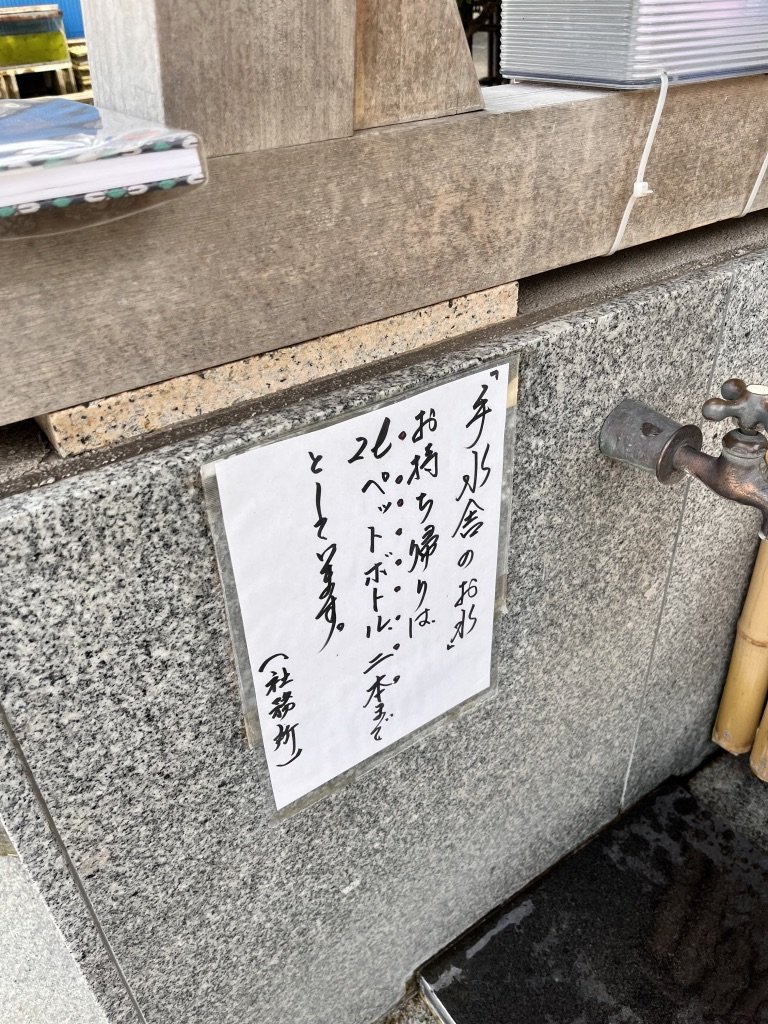 「手水舎のお水」
お持ち帰りは
2ℓペットボトル二本まで
としています。
（社務所）